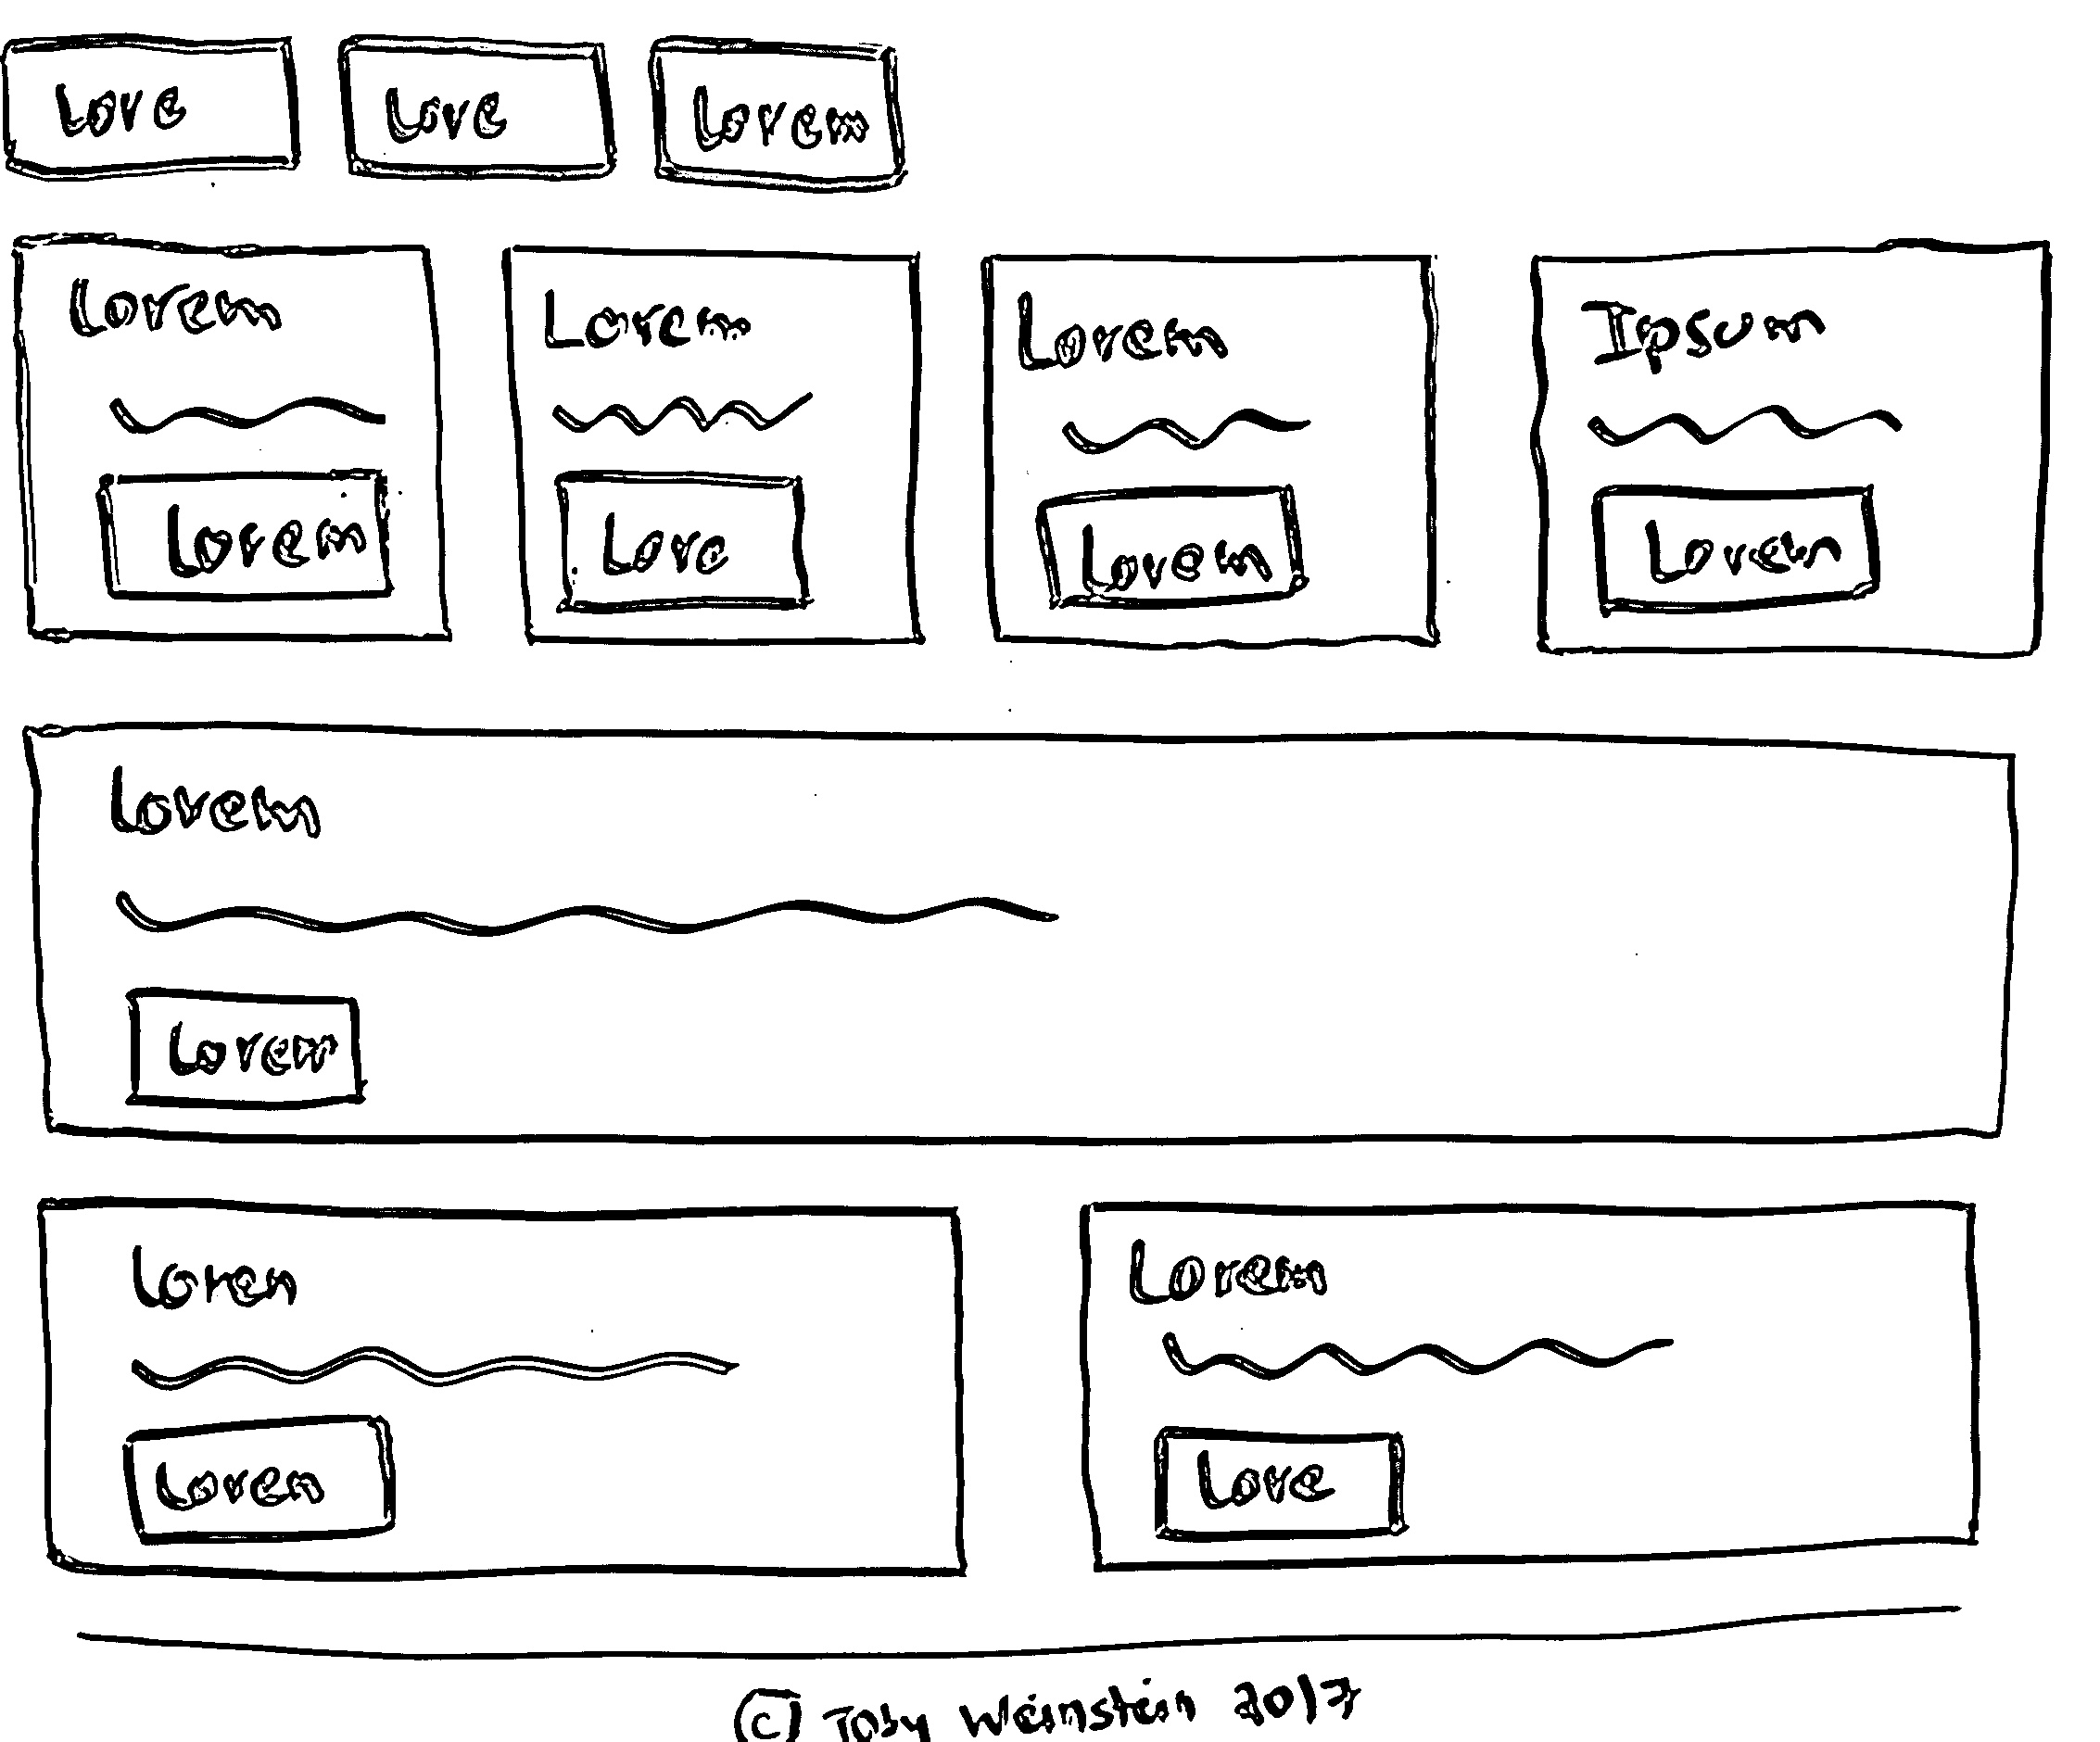 Love Love Lorem
Lorem Lorem Lorem Ipsum
Lorem Love Lorem Lorem
Lorem
Lorem
Loren Lorem
Loren Love
© Toby Weinstein 2017